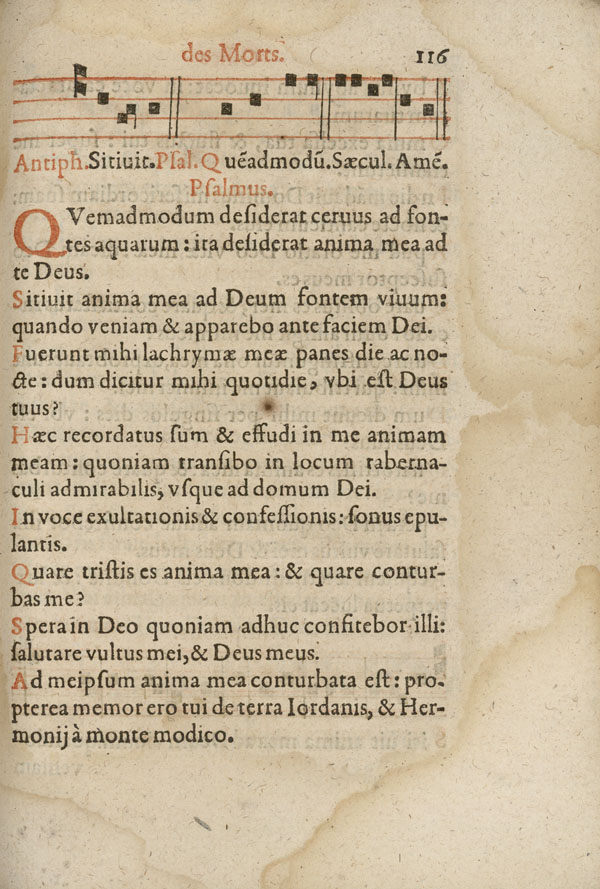 des Morts. 116
Antiph. Sitiuit. Psal. Quẽadmodũ. Sæcul. Amẽ.
Psalmus.
QVemadmodum desiderat ceruus ad fon-
tes aquarum : ita desiderat anima mea ad
te Deus.
Sitiuit anima mea ad Deum fontem viuum:
quando veniam & apparebo ante faciem Dei.
Fuerunt mihi lachrymæ meæ panes die ac no-
cte : dum dicitur mihi quotidie, vbi est Deus
tuus?
Hæc recordatus sum & effudi in me animam
meam : quoniam transibo in locum taberna-
culi admirabilis, vsque ad domum Dei.
In voce exultationis & confessionis : sonus epu-
lantis.
Quare tristis es anima mea : & quare contur-
bas me?
Spera in Deo quoniam adhuc confitebor illi:
salutare vultus mei, & Deus meus.
Ad meipsum anima mea conturbata est : pro-
pterea memor ero tui de terra Iordanis, & Her-
monij à monte modico.